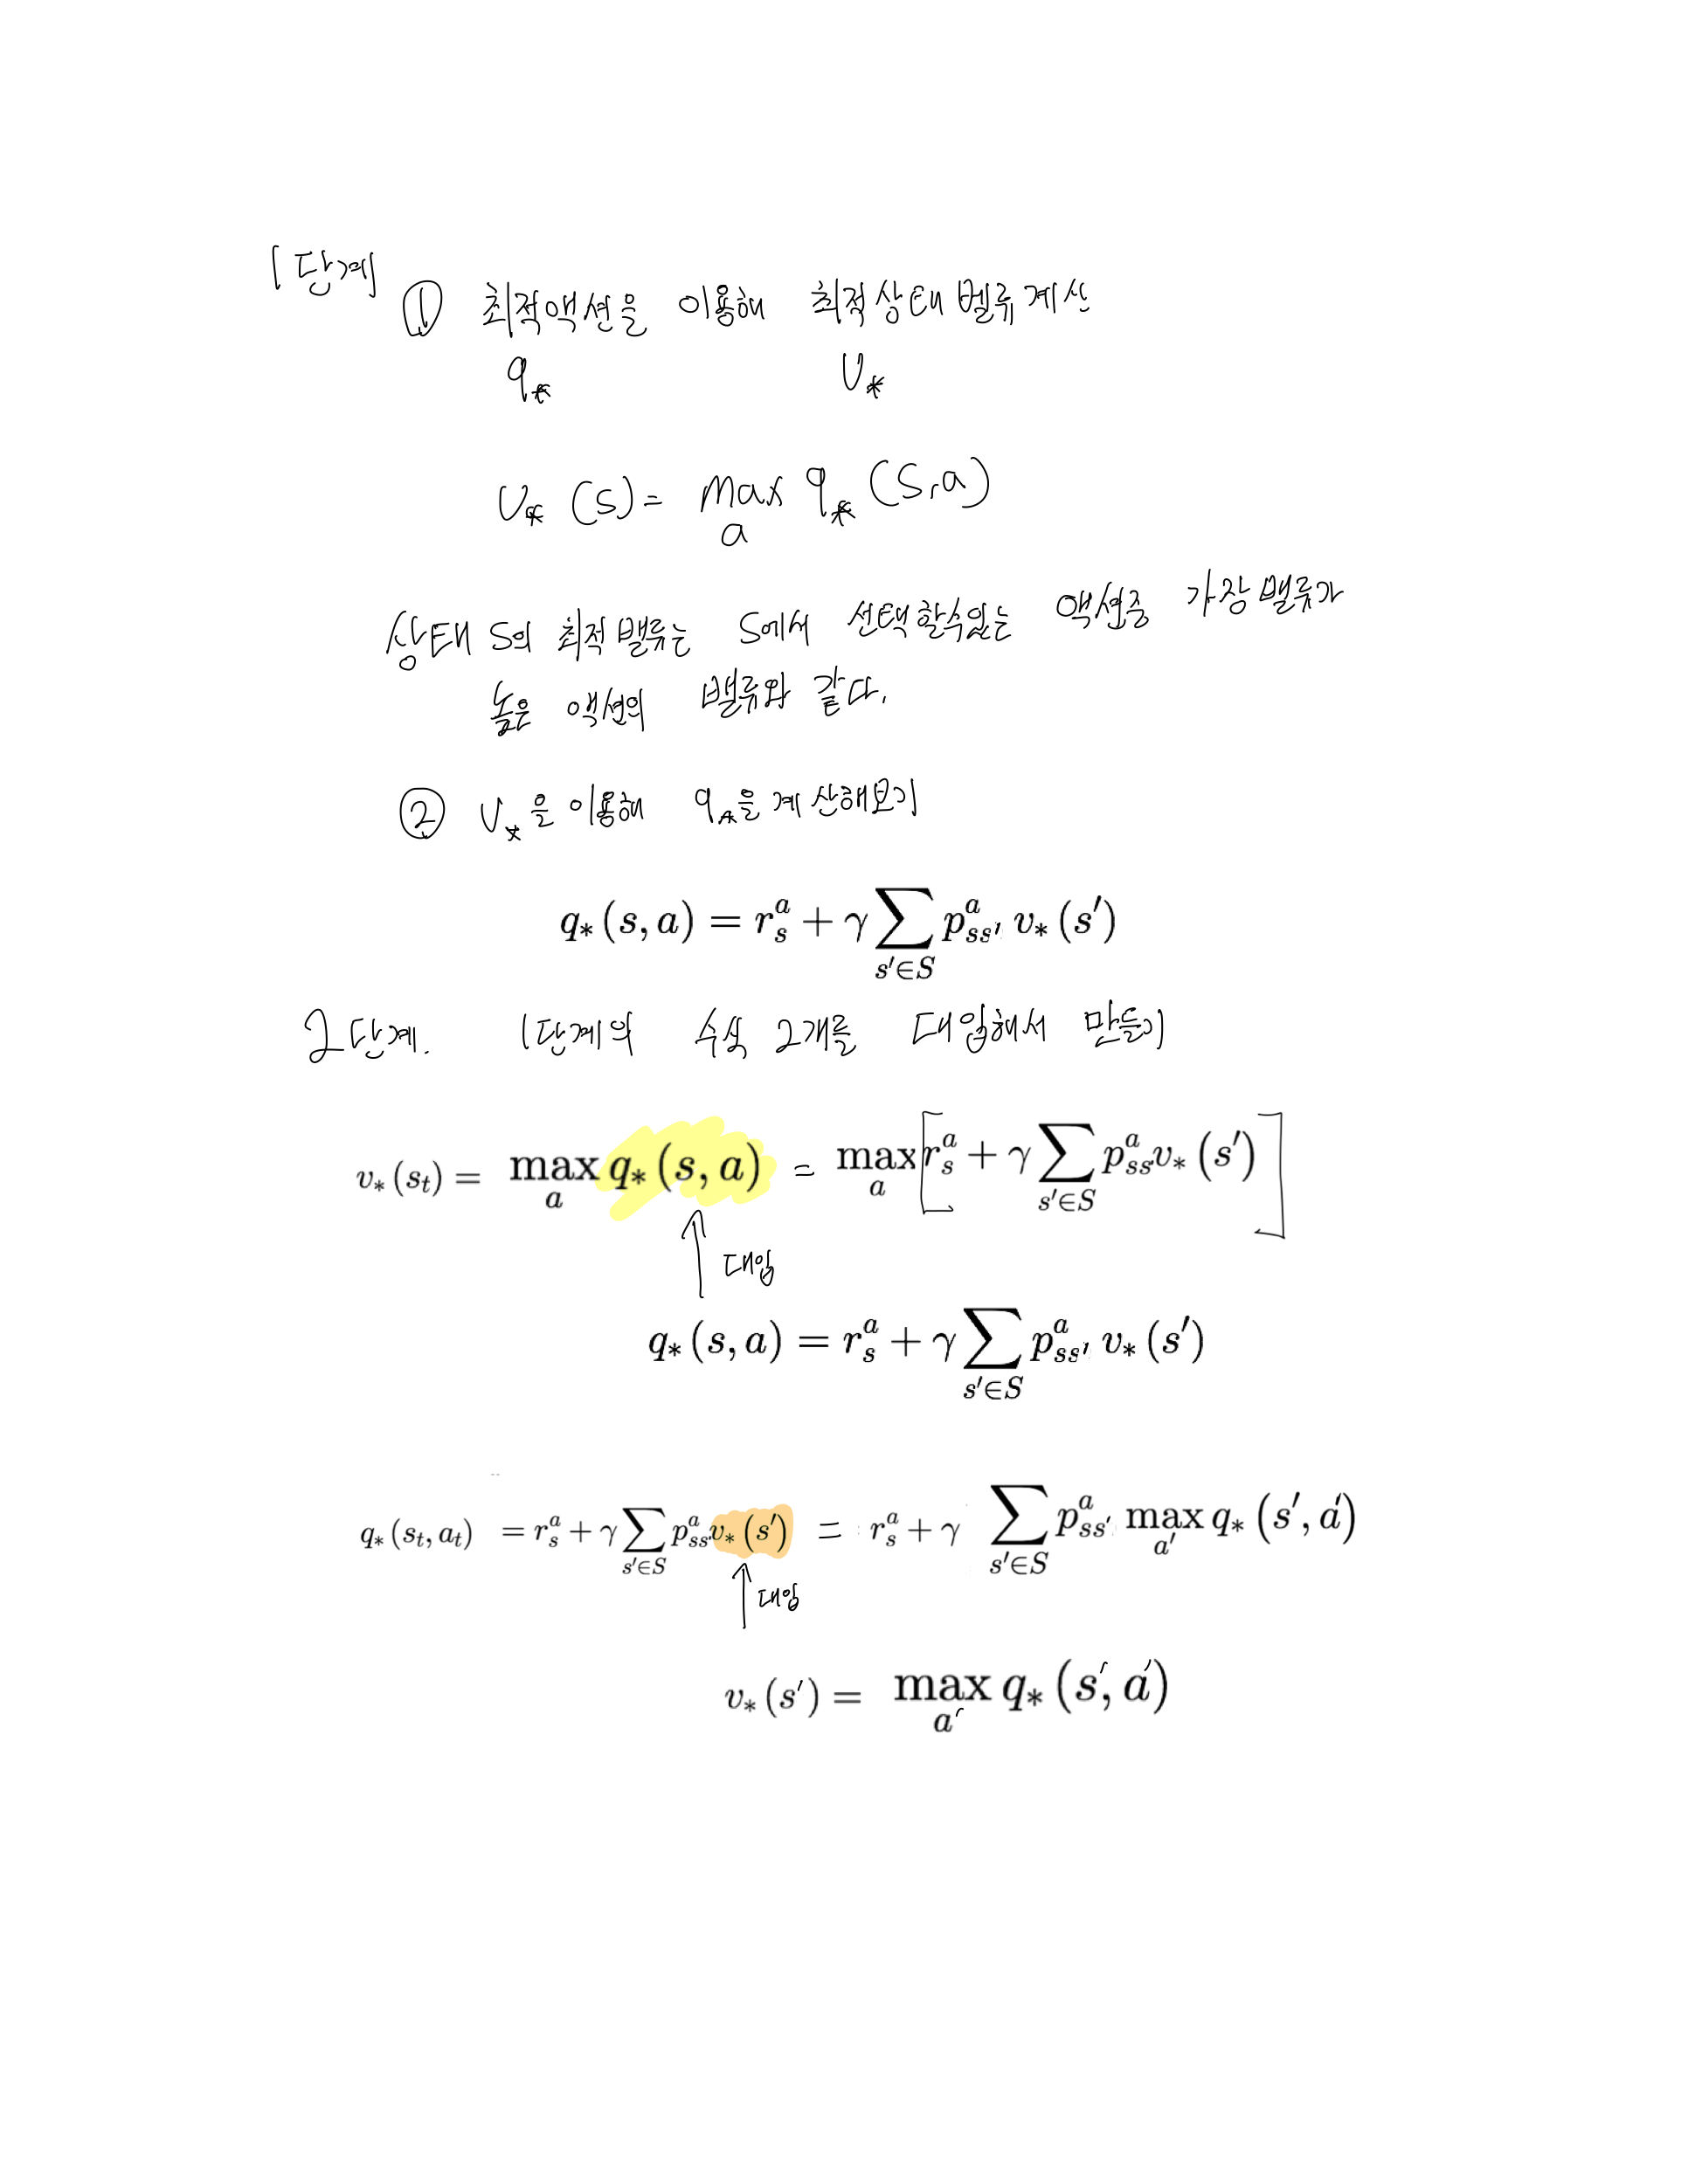 1단계
① 최적액션을 이용해 최적상태벨류계산
q* v*
v*(s) = max_a q*(s,a)
상태 s의 최적밸류는 s에서 선택할수있는 액션중 가장밸류가
높은 액션의 밸류와 같다.
② v*을 이용해 q*을 계산해보기
q*(s, a) = r_s^a + γ ∑_{s'∈S} p_{ss'}^a v*(s')
2단계. 1단계의 수식 2개를 대입해서 만들기
v*(s_t) = max_a q*(s, a) = max_a [r_s^a + γ ∑_{s'∈S} p_{ss'}^a v*(s')]
↑ 대입
q*(s, a) = r_s^a + γ ∑_{s'∈S} p_{ss'}^a v*(s')
q*(s_t, a_t) = r_s^a + γ ∑_{s'∈S} p_{ss'}^a v*(s') = r_s^a + γ ∑_{s'∈S} p_{ss'}^a max_{a'} q*(s', a')
↑ 대입
v*(s') = max_{a'} q*(s', a')